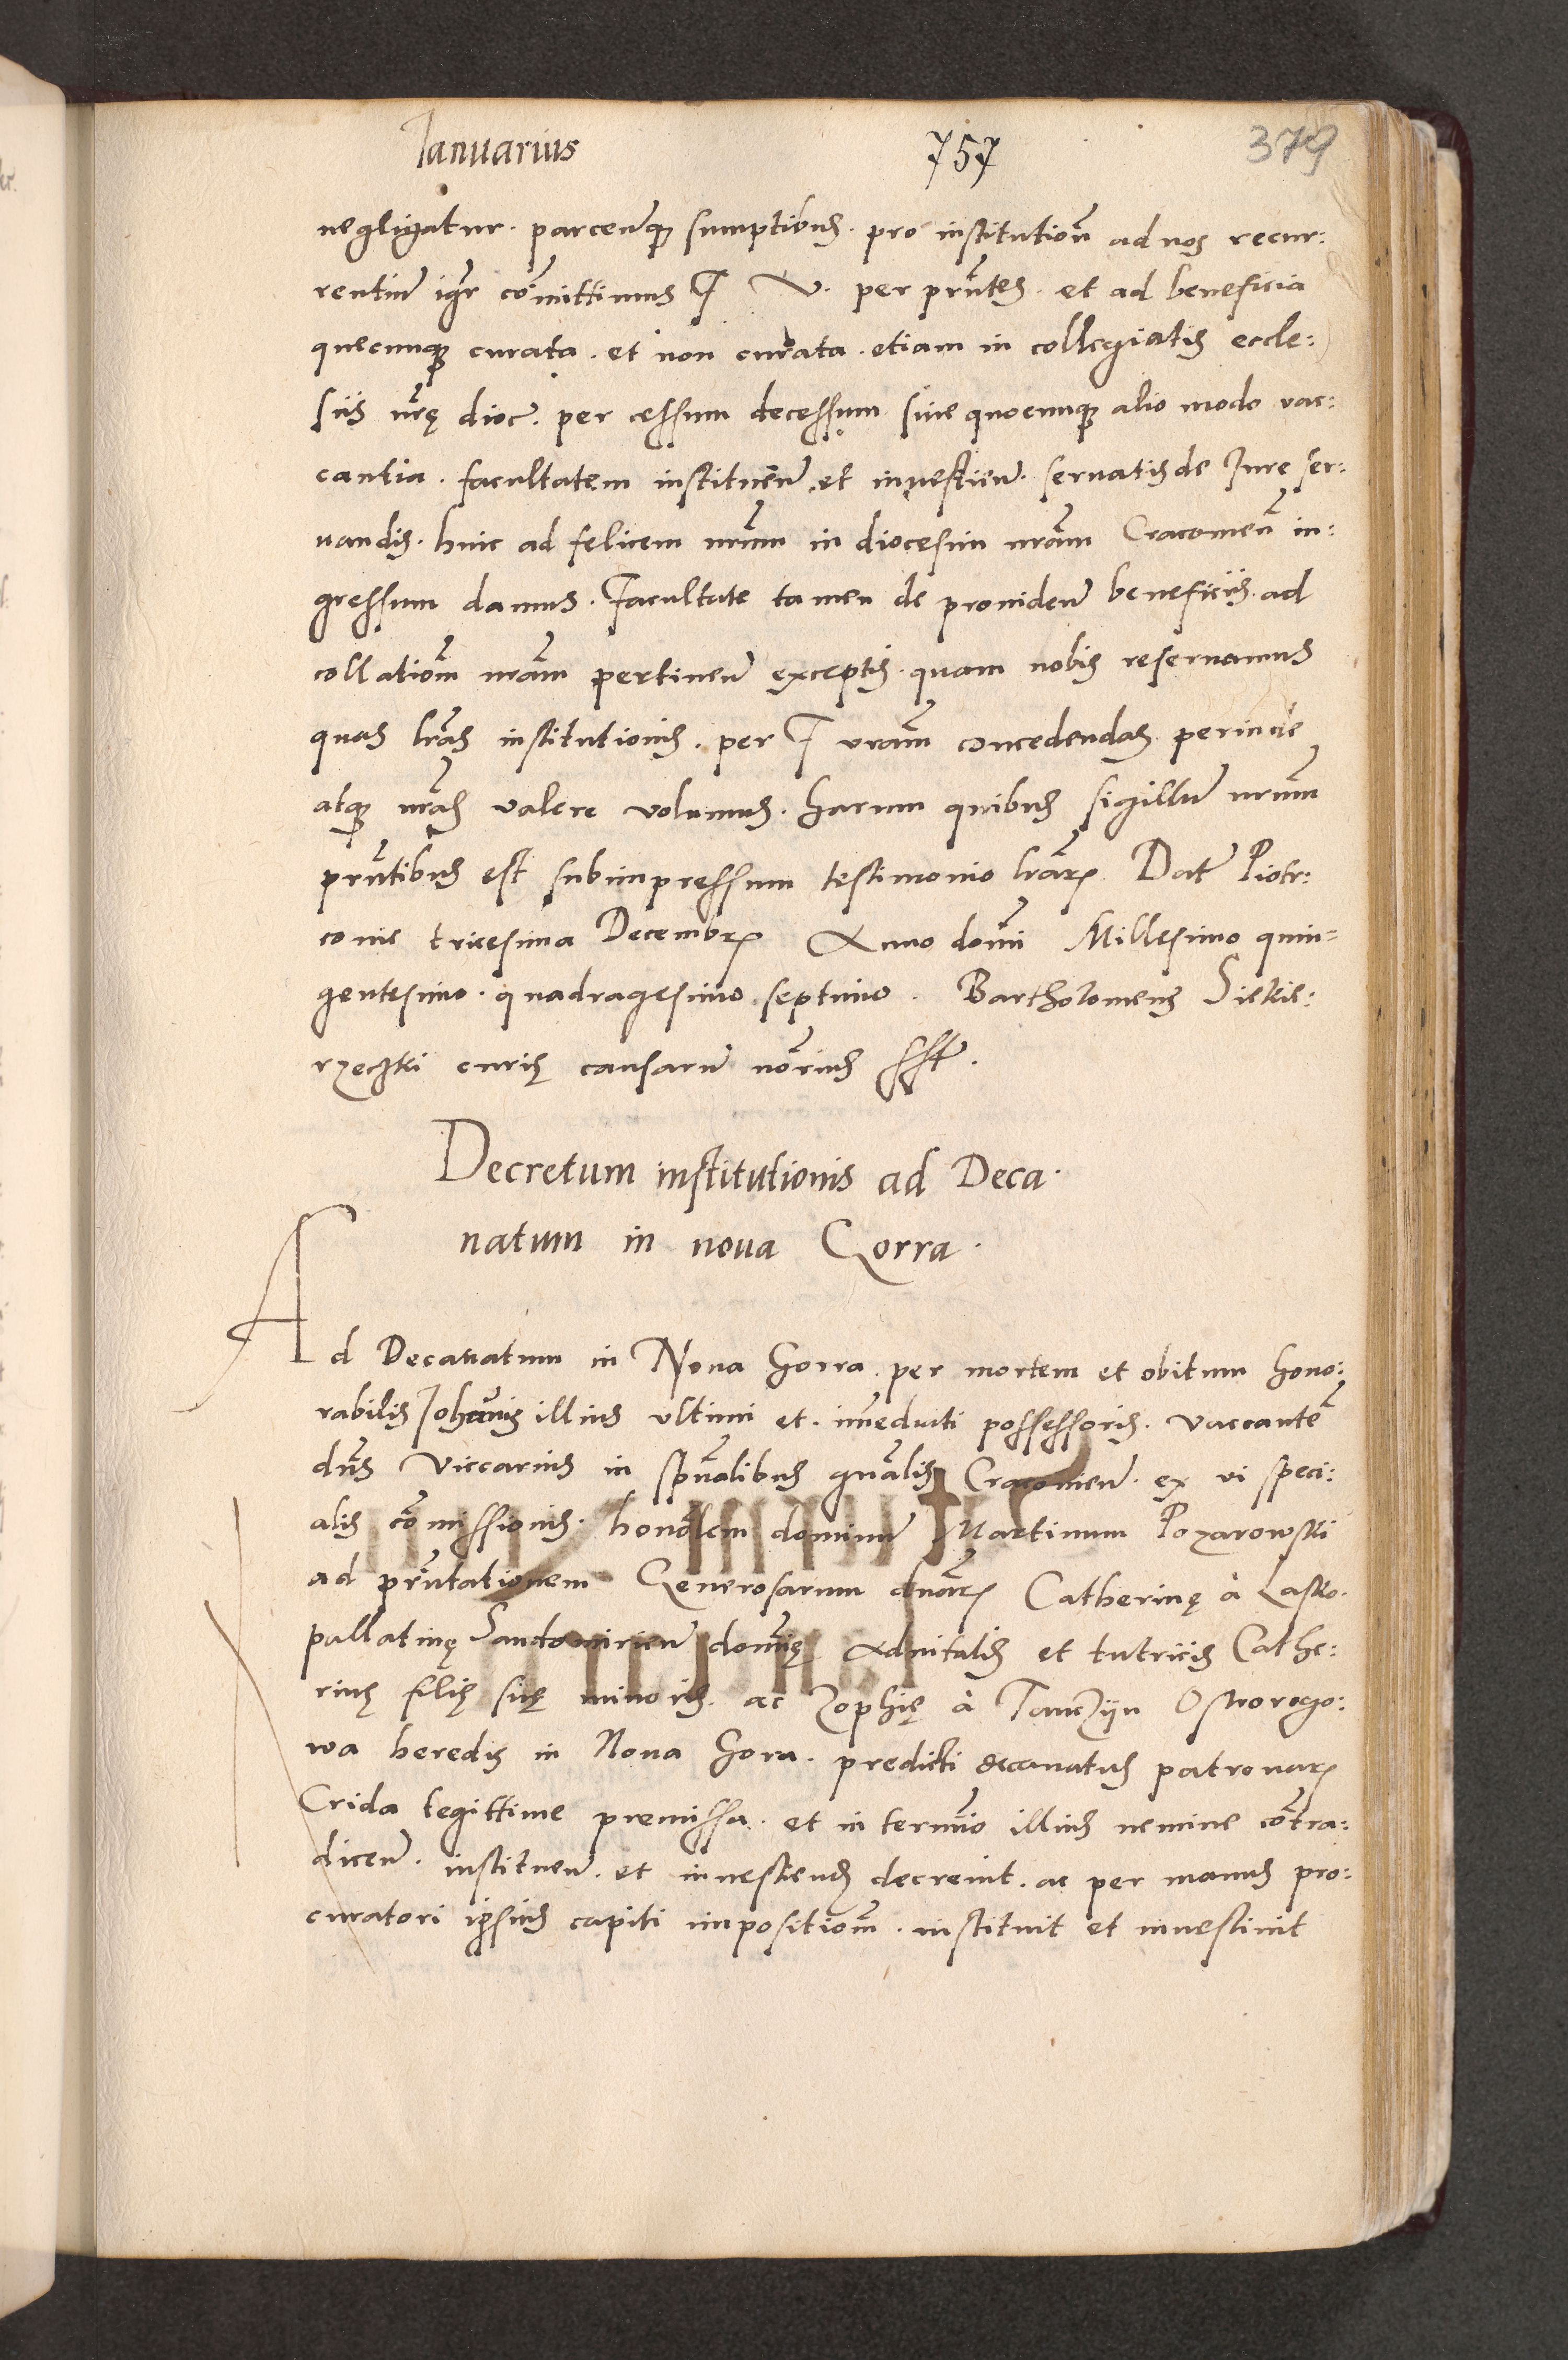 Ianuarius 757 379
negligatur. parcendoque sumptibus. pro institutioni ad nos recur:
rentium igitur cōmittimus F V. per pñtes. et ad beneficia
quecunque curata. et non curata. etiam in collegiatis eccle:
siis nr̄ę dioc. per cessum decessum siue quocunque alio modo vac:
cantia. facultatem instituen̄ et inuestien̄. seruatis de Jure ser:
uandis. hinc ad felicem nr̄um in diocesim nr̄am Cracouien̄ in:
gressum damus. Facultate tamen de prouiden̄ beneficiis. ad
collationē nr̄am pertinen̄ exceptis. quam nobis reseruamus
quas lr̄as institutionis. per F vr̄am concedendas perinde
atque nr̄as valere volumus. Harum quibus sigillū nr̄um
pñtibus est subimpressum testimonio lr̄aꝝ. Dat̄ Piotr:
couie tricesima Decembꝝ Anno domi Millesimo quin=
gentesimo. quadragesimo septimo. Bartholomeus Siekie:
rzeczki curię causarū nōrius sst.
Decretum institutionis ad Deca.
natum in noua Gorra.
Ad Decanatum in Noua Gorra. per mortem et obitum hono:
rabilis Johānis illius vltimi et. īmediati possessoris. vaccantē
dn̄s Viccarius in spūalibus gn̄alis Cracouien̄. ex vi speci:
alis cōmissionis. honōlem dominū Martinum Pozarowski
ad pñtationem Generosarum dn̄aꝝ Catherinę à Lasko.
pallatinę Sandomirien̄ domīę Aduitalis et tutricis Cathe:
rinę filię suę minoris. ac Zophię à Tanczijn Ostrorogo:
wa heredis in Noua Gorra. predicti decanatus patronaꝝ
Crida legittime premissa. et in termīo illius nemine cōtra:
dicen̄. instituen̄. et inuestiendū decreuit. ac per manus pro:
curatori ipsius capiti impositionē. instituit et inuestiuit